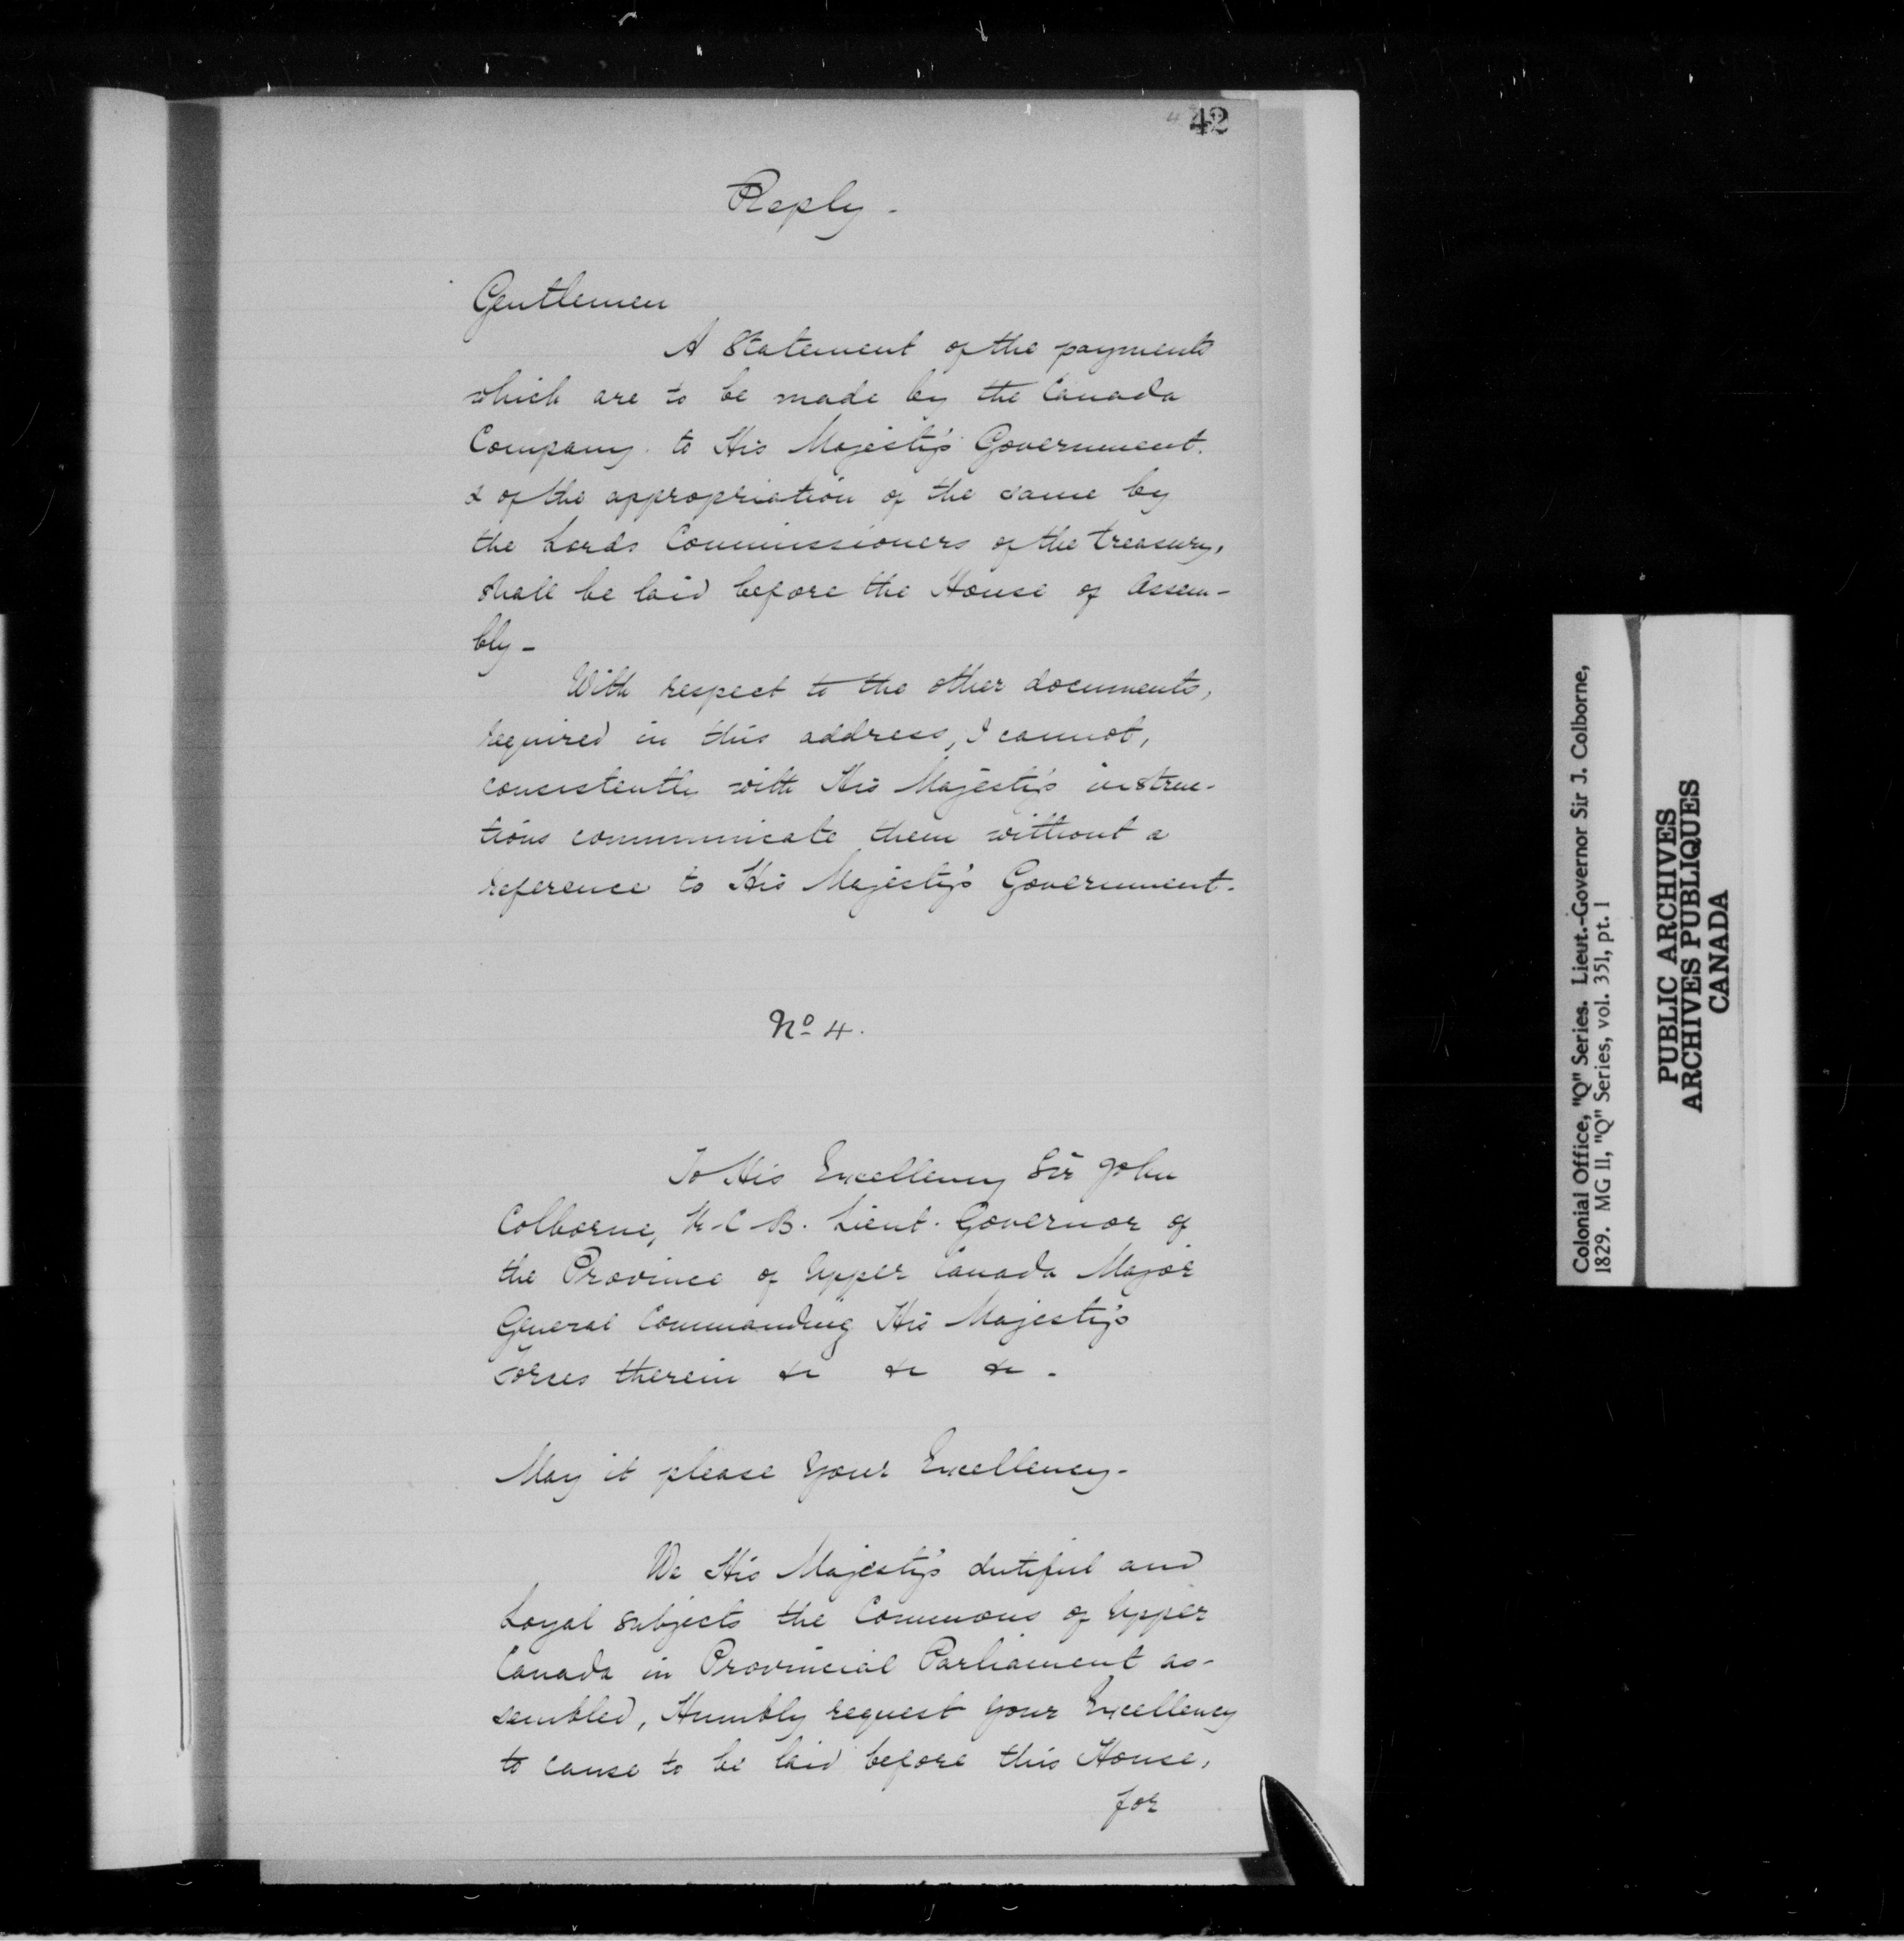 42
Reply -
Gentlemen
A Statement of the payments
which are to be made by the Canada
Company to His Majesty's Government.
& of the appropriation of the same by
the Lords Commissioners of the treasury,
shall be laid before the House of Assem-
bly -
With respect to the other documents,
required in this address, I cannot,
consistently with His Majesty's instruc-
tions communicate them without a
reference to His Majesty's Government.
No 4.
To His Excellency Sir John
Colborne, K-C-B. Lieut. Governor of
the Province of Upper Canada Major
General Commanding His Majesty's
Forces therein &c &c &c -
May it please Your Excellency -
We His Majesty's dutiful and
Loyal subjects the Commons of Upper
Canada in Provincial Parliament as-
sembled, Humbly request Your Excellency
to cause to be laid before this House,
for
Colonial Office, "Q" Series. Lieut.-Governor Sir J. Colborne,
1829. MG 11, "Q" Series, vol. 351, pt. 1
PUBLIC ARCHIVES
ARCHIVES PUBLIQUES
CANADA